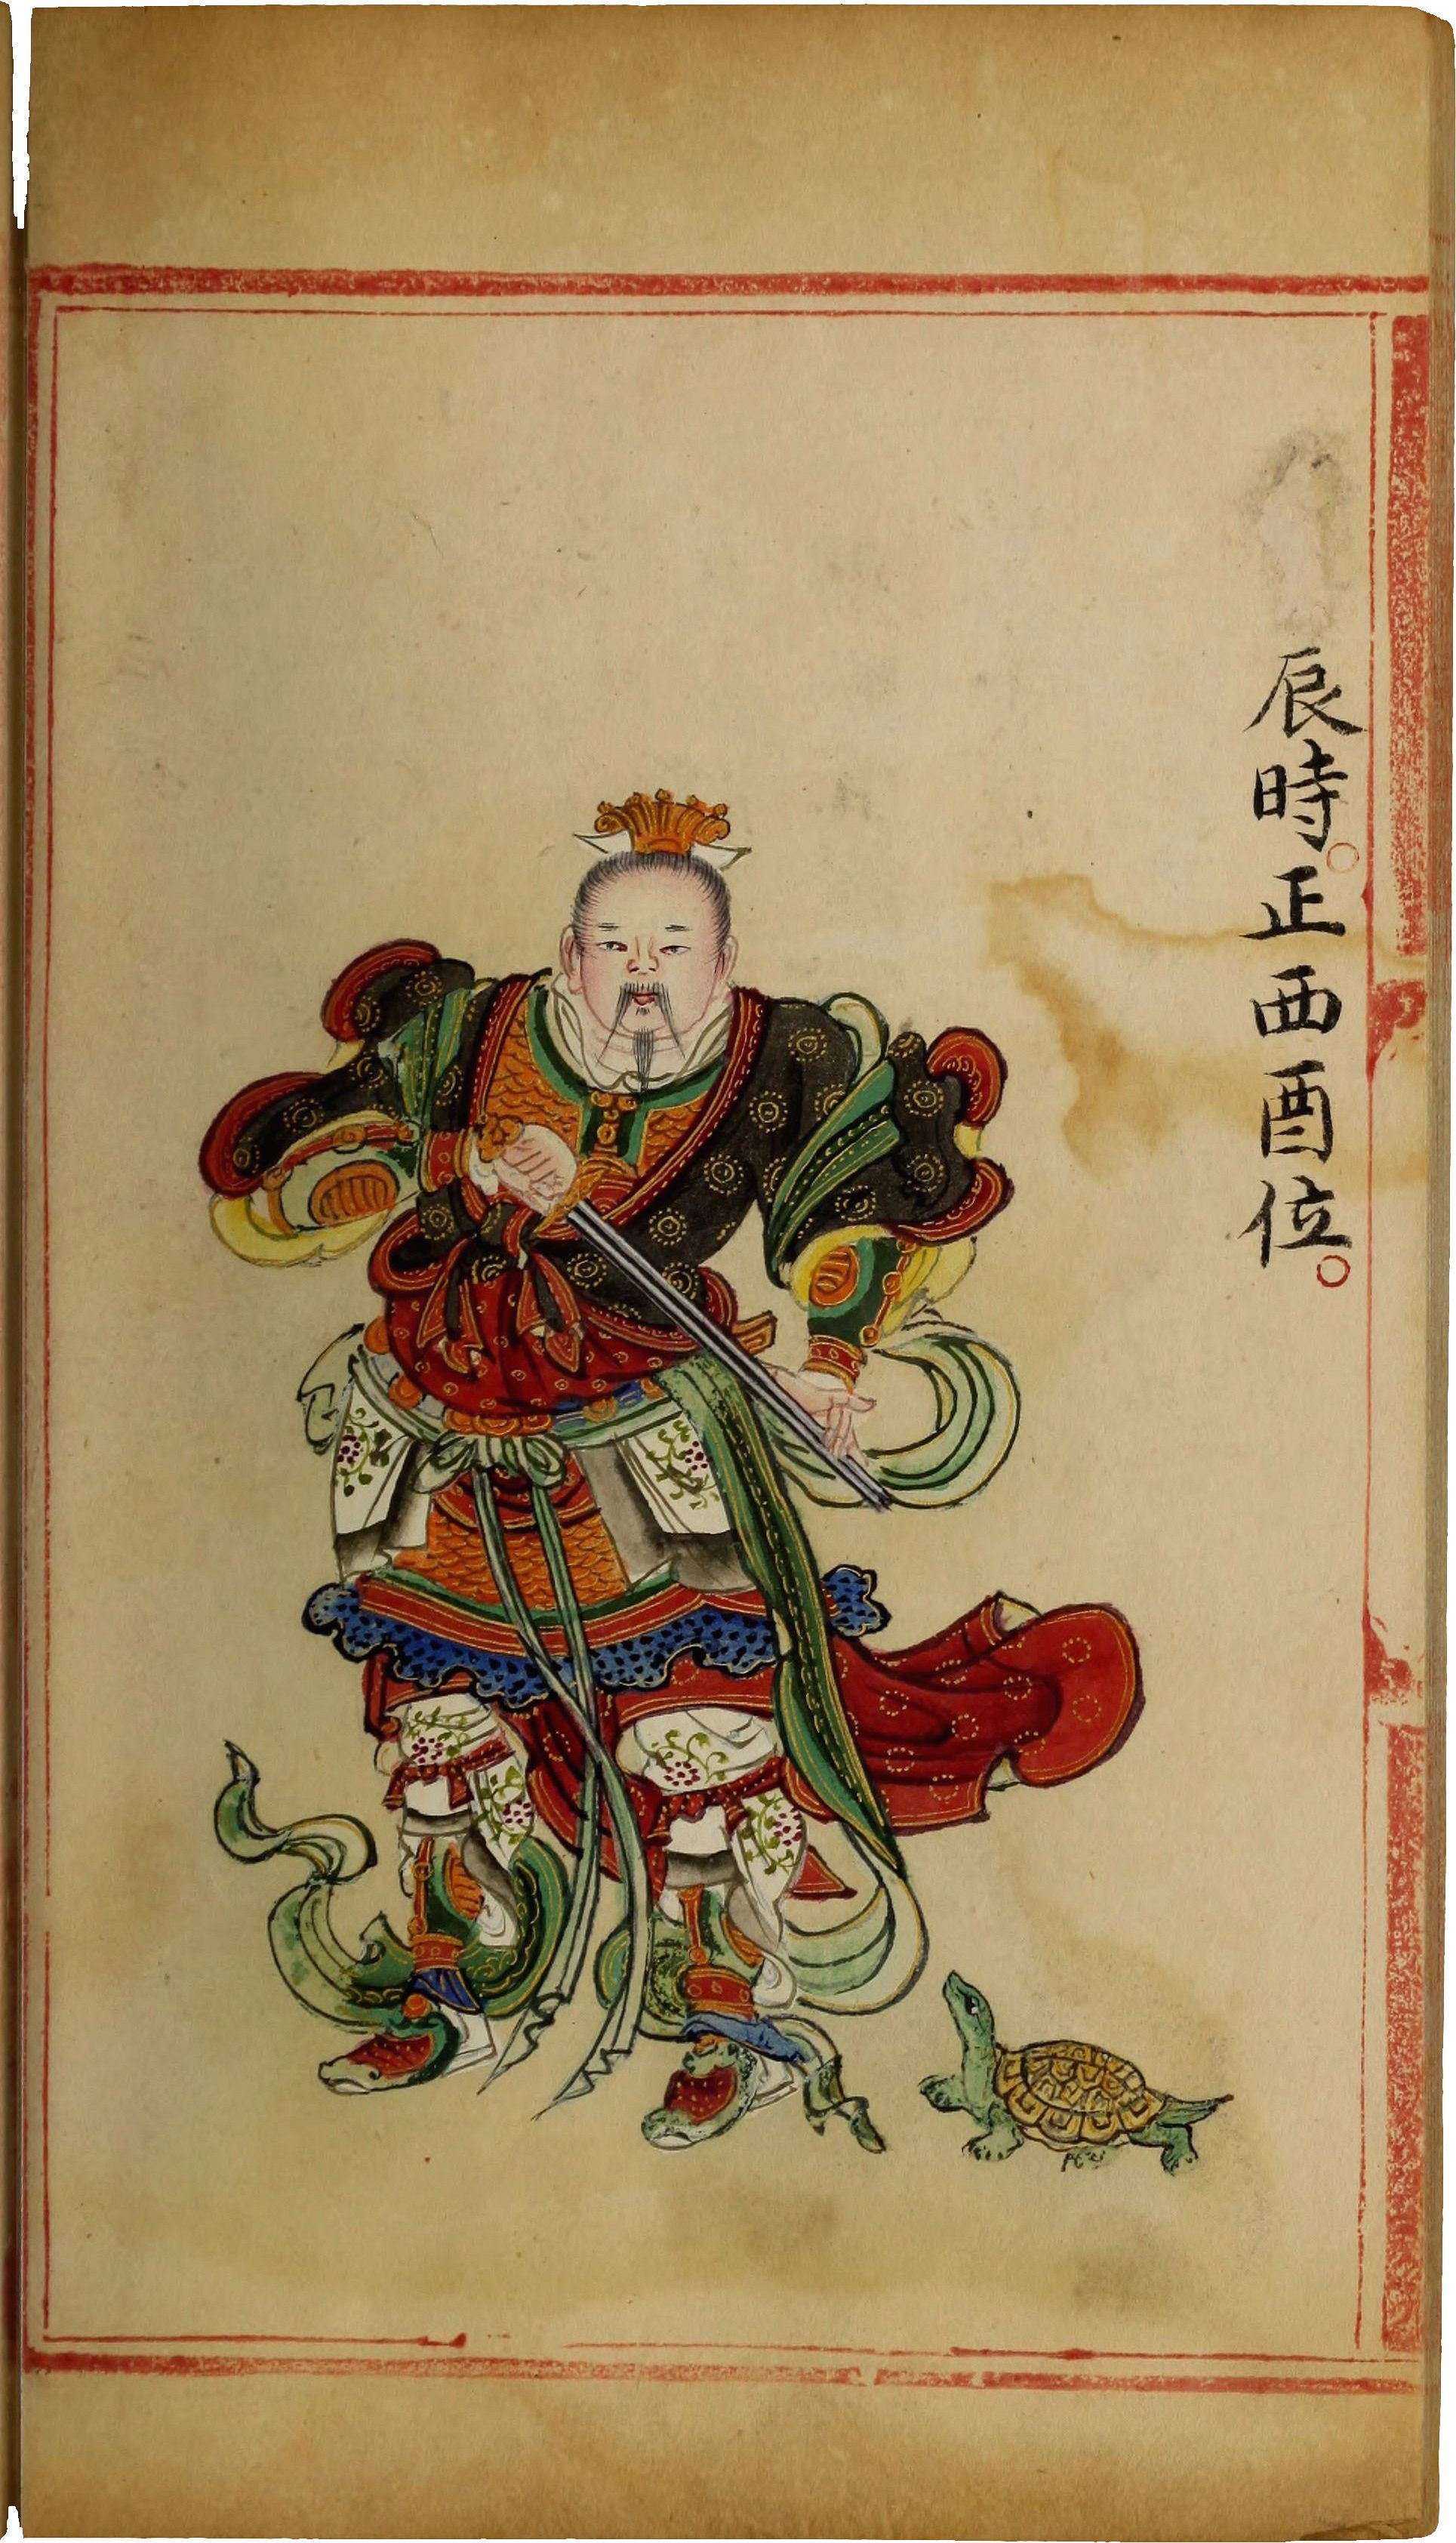 辰時正西酉位